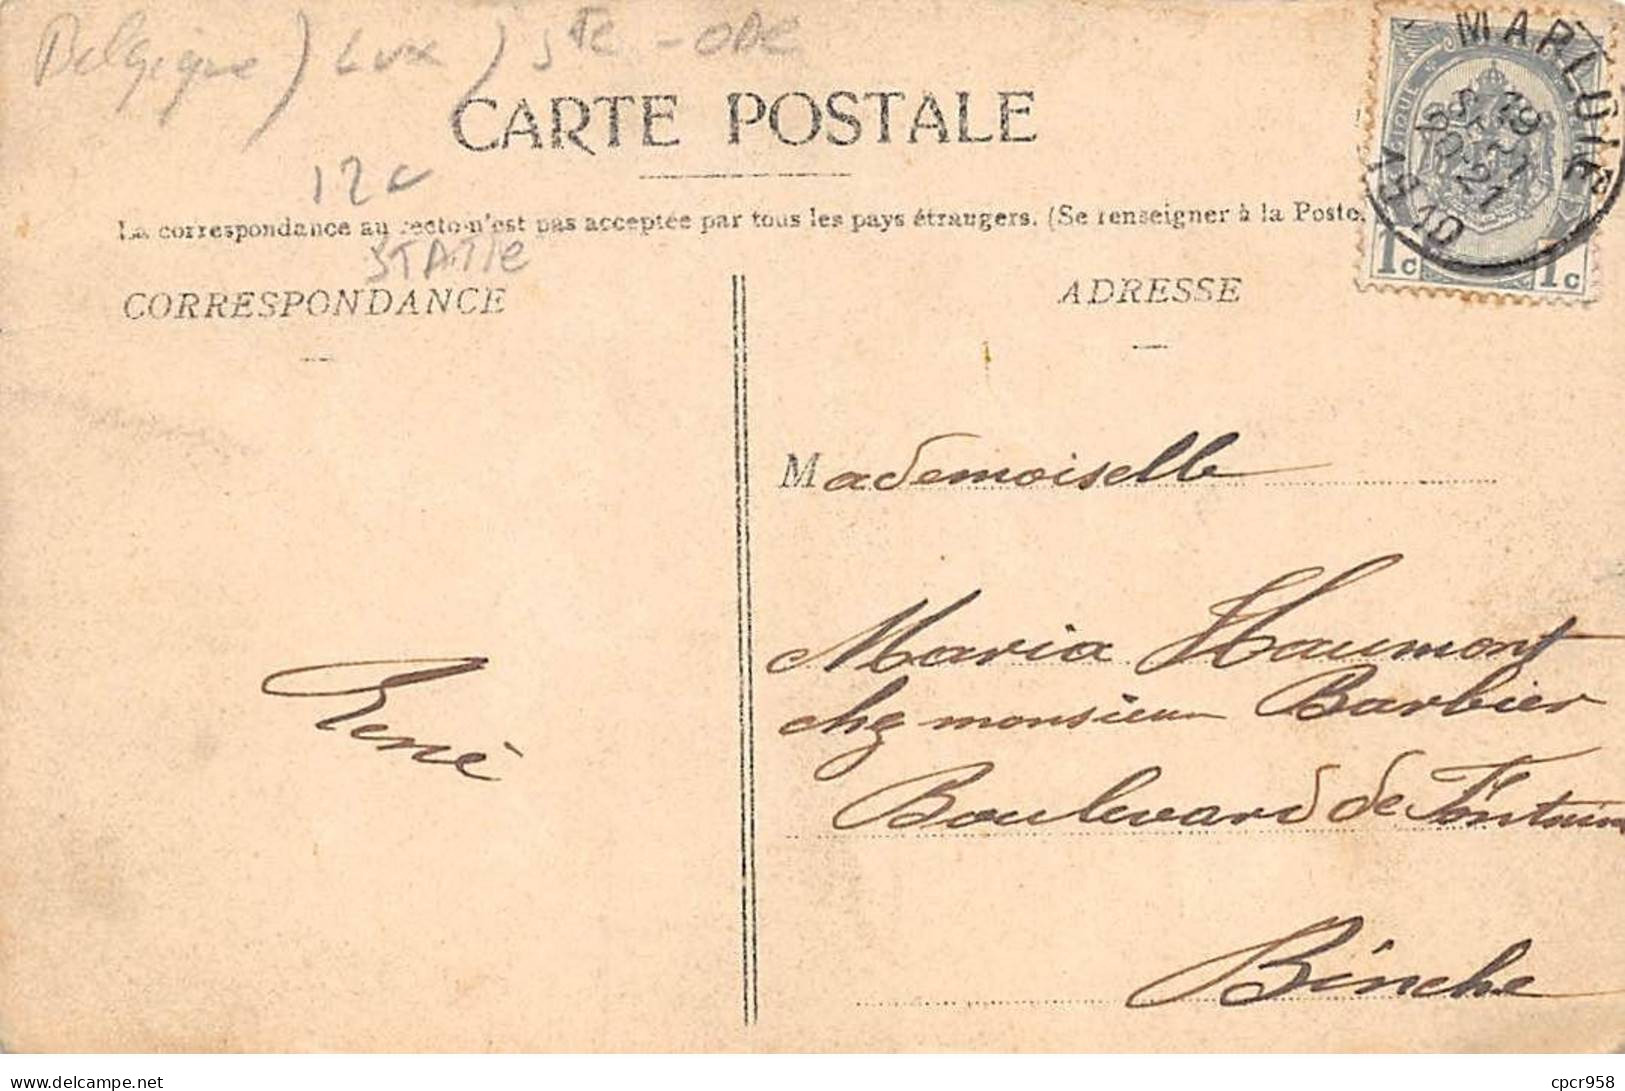 Belgique) Lux) Ste - ODE
CARTE POSTALE
12c
La correspondance au recto n'est pas acceptée par tous les pays étrangers. (Se renseigner à la Poste.
STATIE
CORRESPONDANCE
ADRESSE
1c 1c
Mademoiselle
Maria Haumont
chez monsieur Barbier
Boulevard de Fontaine
Binche
René
www.delcampe.net
cpcr958